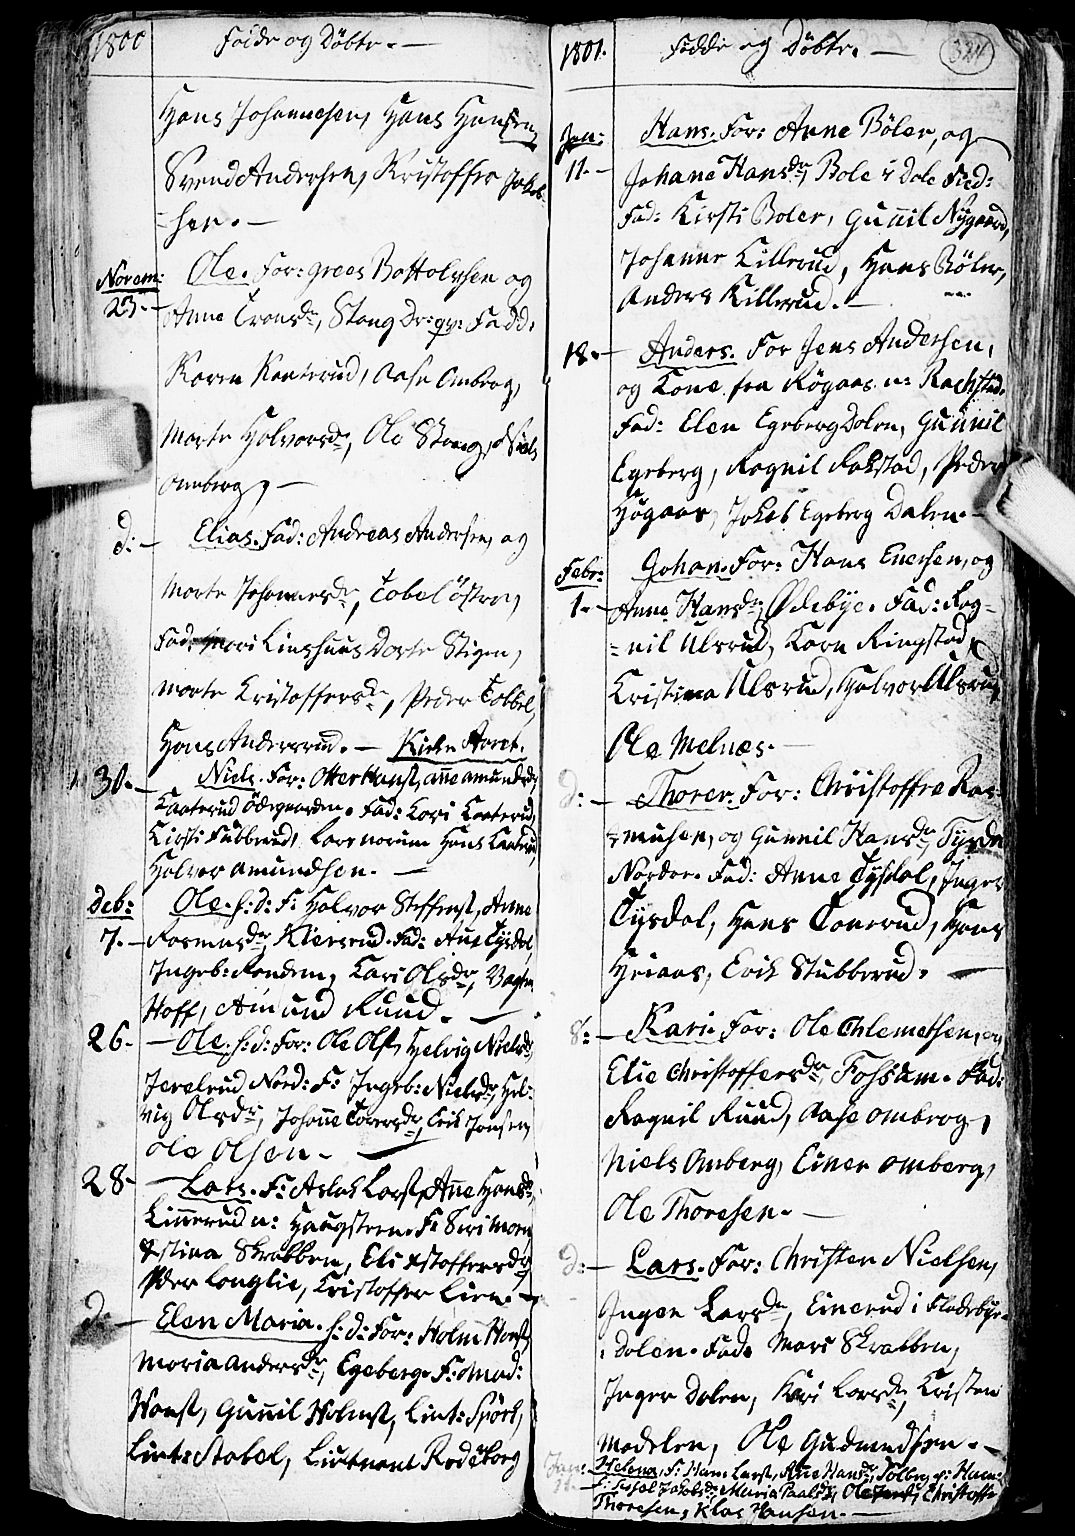 1800 Födde og Döbte. —
Hans Johannesen, Hans Hansen,
Svend Andersen, Kristoffer Jakob-
-sen. —
Novem: Ole. For: Grees Bottolvsen og
23. — Anne Tronsdr, Stang Fadd:
Karen Kaaterud, Aase Omberg,
Marte Halvorsdr, Ole Stang, Niels
Omberg, —
d: — Elias. Fad: Andreas Andersen, og
Marte Johannesdr, Tobel östre,
Fad: Mari Linshuus Dorte Stigen,
Marte Kristoffersdr, Peder Tobbel,
Hans Andersrud. — Kirke Aaret.
30. — Niels. For: Otter Hanss, Anne Amundsdr
Kaaterud Ödegaarden. Fad: Kari Kaaterud,
Kirsti Fubberud, Lars Norum Hans Kaaterud,
Halvor Amundsen. —
Deb: Ole. h: d: F: Halvor Steffenss, Anne
7. — Rasmusdr, Kiersrud. Fad: Ane Tysdal,
Ingeb: Randem, Kari Olsdr,
Hoff, Amund Ruud. —
26. — Ole. h: d: For: Ole Olss, Helvig Nielsdr,
Jerelrud Nord: F: Ingeb: Nielsdr, Hel-
vig Olsdr, Johanne Toresdr, Erik Jonsen,
Ole Olsen. —
28 — Lars. F: Aslak Larss, Anne Hansdr,
Linnerud n: Haugsteen. F: Siri Moen,
Xstina Skrabben, Eli Xstoffersdr,
Peder Langlie, Kristoffer Lien. —
d: — Elen Maria. h: d: For: Holm Hanss,
Maria Andersdr, Egeberg. F: Mad:
Horst, Gunnil Holmst, Lieut: Spörk,
Lieut: Stabel, Lieutnant Rodeborg
1801. Födde og Döbte. — 324
Jan: Hans. For: Anne Böler, og
11. — Johane Hansdr, Bole i Dole Fad:
Fad: Kirsti Boler, Gunnil Nygaard,
Johanne Killerud, Hans Böler,
Anders Killerud. —
18. — Anders. For Jens Andersen,
og Kone fra Högaas n: Rachstad.
Fad: Elen Egeberg Dolen, Gunnil
Egeberg, Ragnil Rakstad, Peder
Högaas, Jokob Egeberg Dalen. —
Febr: Johan. For: Hans Evensen, og
1. — Anne Hansdr, Ödebye. Fad: Rag-
-nil Ulsrud, Karn Ringstad,
Kristina Ulsrud, Halvor Ulsrud,
Ole Melnæs. —
d: — Thorer. For: Christoffer Ras-
-musen, og Gunnil Hansdr, Tysdal
Nordre. Fad: Anne Tysdal, Inger
Tysdal, Hans Tonerud, Hans
Hviaas, Erik Stubberud. —
8: — Kari. For: Ole Chlemetsen, og
Elie Christoffersdr, Fossum. Fad:
Ragnil Ruud, Aase Ombrog,
Niels Omberg, Einer Omberg,
Ole Thoresen. —
d: — Lars. For: Christen Nielsen,
Inger Larsdr, Einerud i Fladebye-
dolen. Fad: Mari Skrabben,
Inger Dolen, Kari Larsdr, Kristen
Modelen, Ole Gudmundsen. —
Jan: Helena, F: Hans Larss, Ane Hansdr, Solberg
11. — Maria Paalsdr, Christoffer
Thoresen, Klas Hansen. —